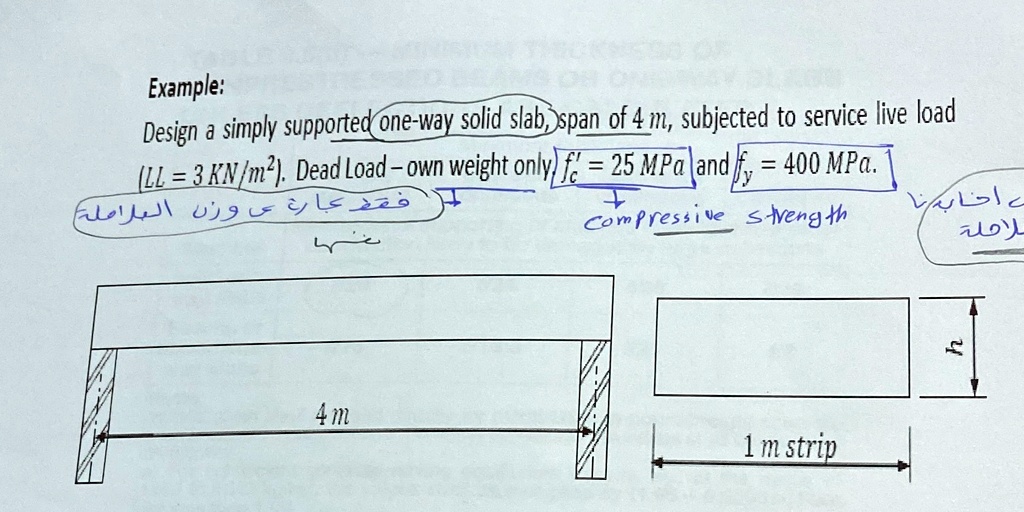 Example:
Design a simply supported one-way solid slab, span of 4 m, subjected to service live load
(LL = 3 KN/m²). Dead Load – own weight only, f′c = 25 MPa and fy = 400 MPa.
فقط عبارة عن وزن البلاطة
compressive strength
نفسها
4 m
h
1 m strip